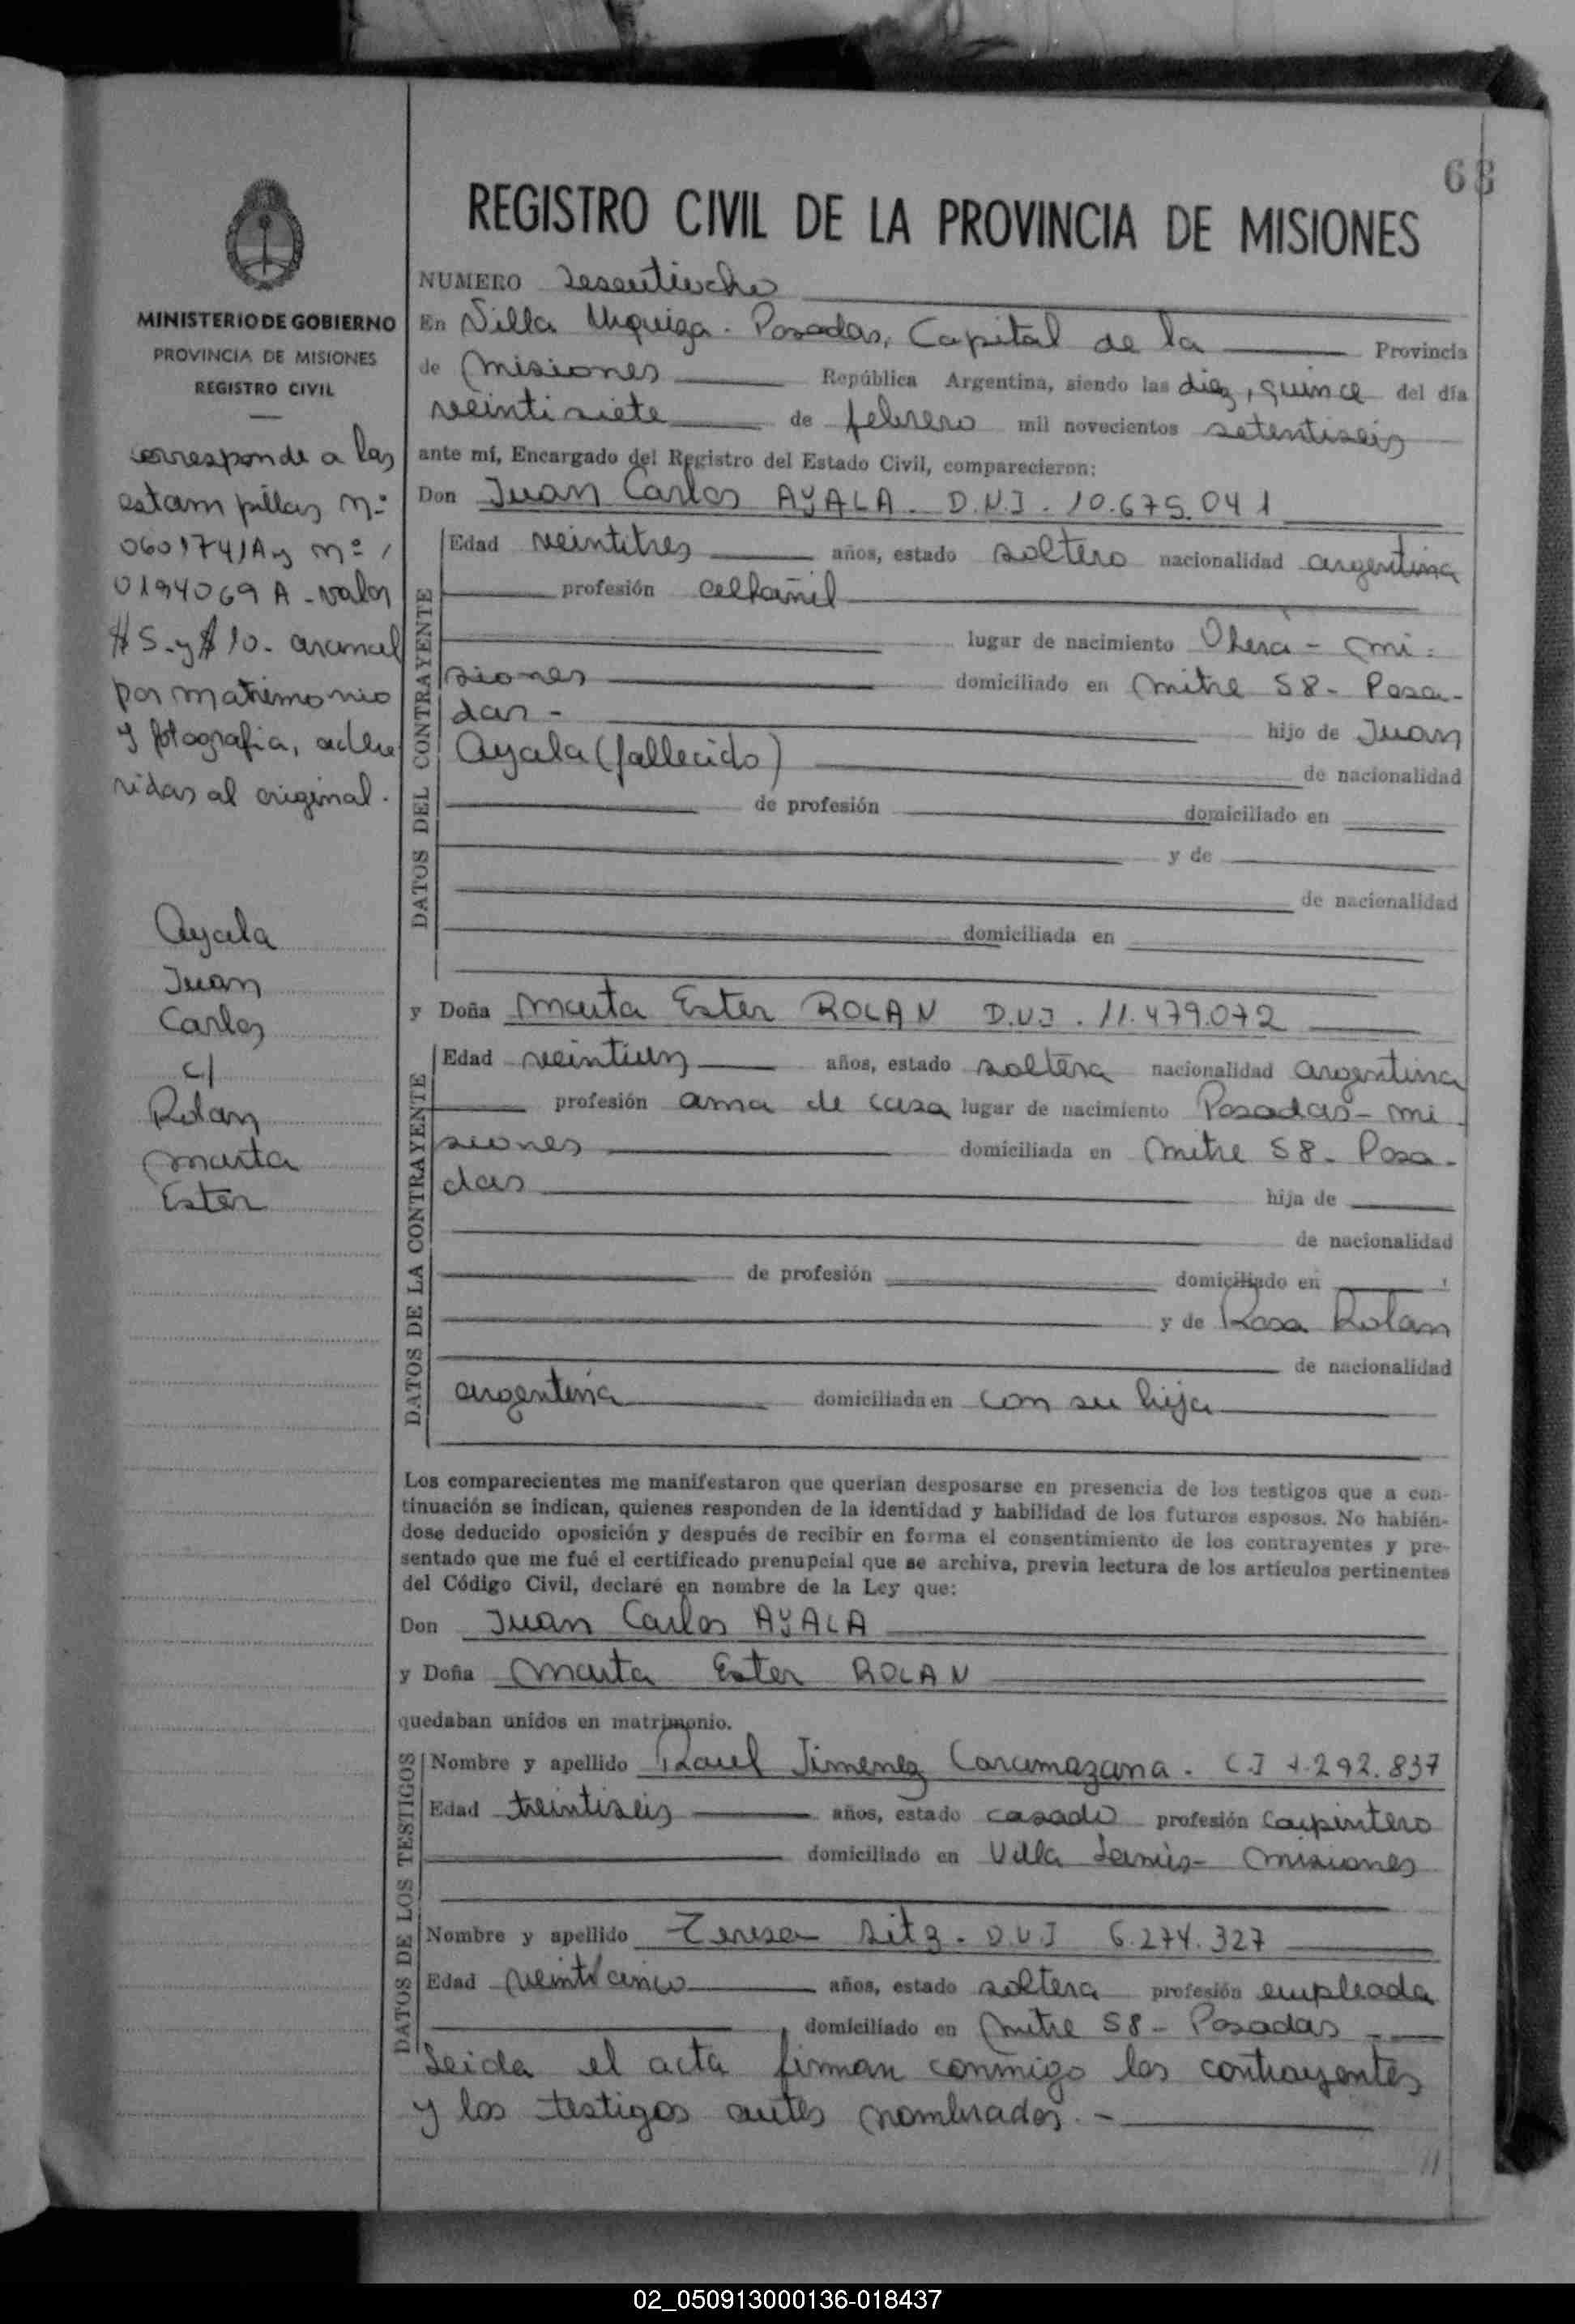 68
REGISTRO CIVIL DE LA PROVINCIA DE MISIONES
NUMERO sesentiocho
En Villa Urquiza. Posadas, Capital de la Provincia
de Misiones República Argentina, siendo las diez, quince del día
veintisiete de febrero mil novecientos setentiseis
ante mí, Encargado del Registro del Estado Civil, comparecieron:
Don Juan Carlos AYALA. D.N.I. 10.675.041
DATOS DEL CONTRAYENTE
Edad veintitres años, estado soltero nacionalidad argentina
profesión albañil
lugar de nacimiento Oberá - Mi-
siones domiciliado en Mitre 58 - Posa-
das - hijo de Juan
Ayala (fallecido) de nacionalidad
de profesión domiciliado en
y de
de nacionalidad
domiciliada en
y Doña Marta Ester ROLAN D.N.I. 11.479.072
DATOS DE LA CONTRAYENTE
Edad veintiun años, estado soltera nacionalidad argentina
profesión ama de casa lugar de nacimiento Posadas - Mi
siones domiciliada en Mitre 58 - Posa-
das hija de
de nacionalidad
de profesión domiciliado en
y de Rosa Rolan
de nacionalidad
argentina domiciliada en con su hija
Los comparecientes me manifestaron que querían desposarse en presencia de los testigos que a con-
tinuación se indican, quienes responden de la identidad y habilidad de los futuros esposos. No habién-
dose deducido oposición y después de recibir en forma el consentimiento de los contrayentes y pre-
sentado que me fué el certificado prenupcial que se archiva, previa lectura de los artículos pertinentes
del Código Civil, declaré en nombre de la Ley que:
Don Juan Carlos AYALA
y Doña Marta Ester ROLAN
quedaban unidos en matrimonio.
DATOS DE LOS TESTIGOS
Nombre y apellido Raul Jimenez Caramazana. C.I 292.837
Edad treintiseis años, estado casado profesión Carpintero
domiciliado en Villa Lanús - Misiones
Nombre y apellido Teresa Sitz. D.N.I 6.274.327
Edad veinticinco años, estado soltera profesión empleada
domiciliado en Mitre 58 - Posadas
Leida el acta firman conmigo los contrayentes
y los testigos antes nombrados. -
MINISTERIO DE GOBIERNO
PROVINCIA DE MISIONES
REGISTRO CIVIL
corresponde a las
estampillas nº
0601741A y nº
0194069 A - valor
$ 5 - y $ 10 - arancel
por matrimonio
y fotografia, adhe
ridas al original.
Ayala
Juan
Carlos
c/
Rolan
Marta
Ester
02_050913000136-018437